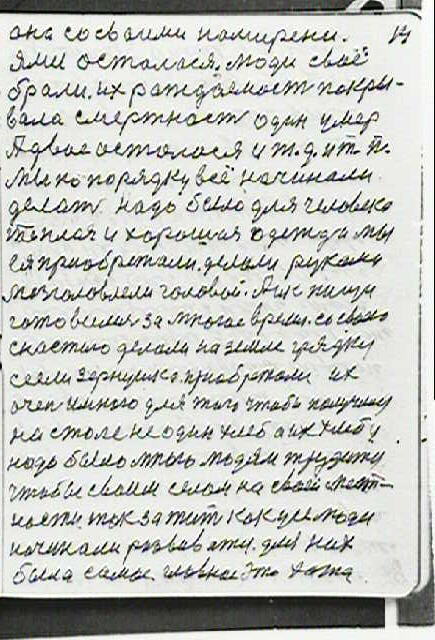 она со своими намирени. 14
ями осталося. люди своё
брали. их раждаемост покры-
вала смертност один умер
Адвое осталося и т. д. и т. п.
Мы по порядку всё начинали
делат. надо было для человека
теплая и хорошая одежда мы
ея приобретали. делали руками
головой. Аик пищи
готовилис за многое время. со своею
снастию делали на земле грядку
сеели зернушко. приобретали их
очен много для того чтобы получилос
на столе неодин хлеб а их хлебу
надо было много людям трудиту
чтобы своим селом на своей мест-
ности так зажит как уже люди
начинали развиват. для них
была самое главное это хата.